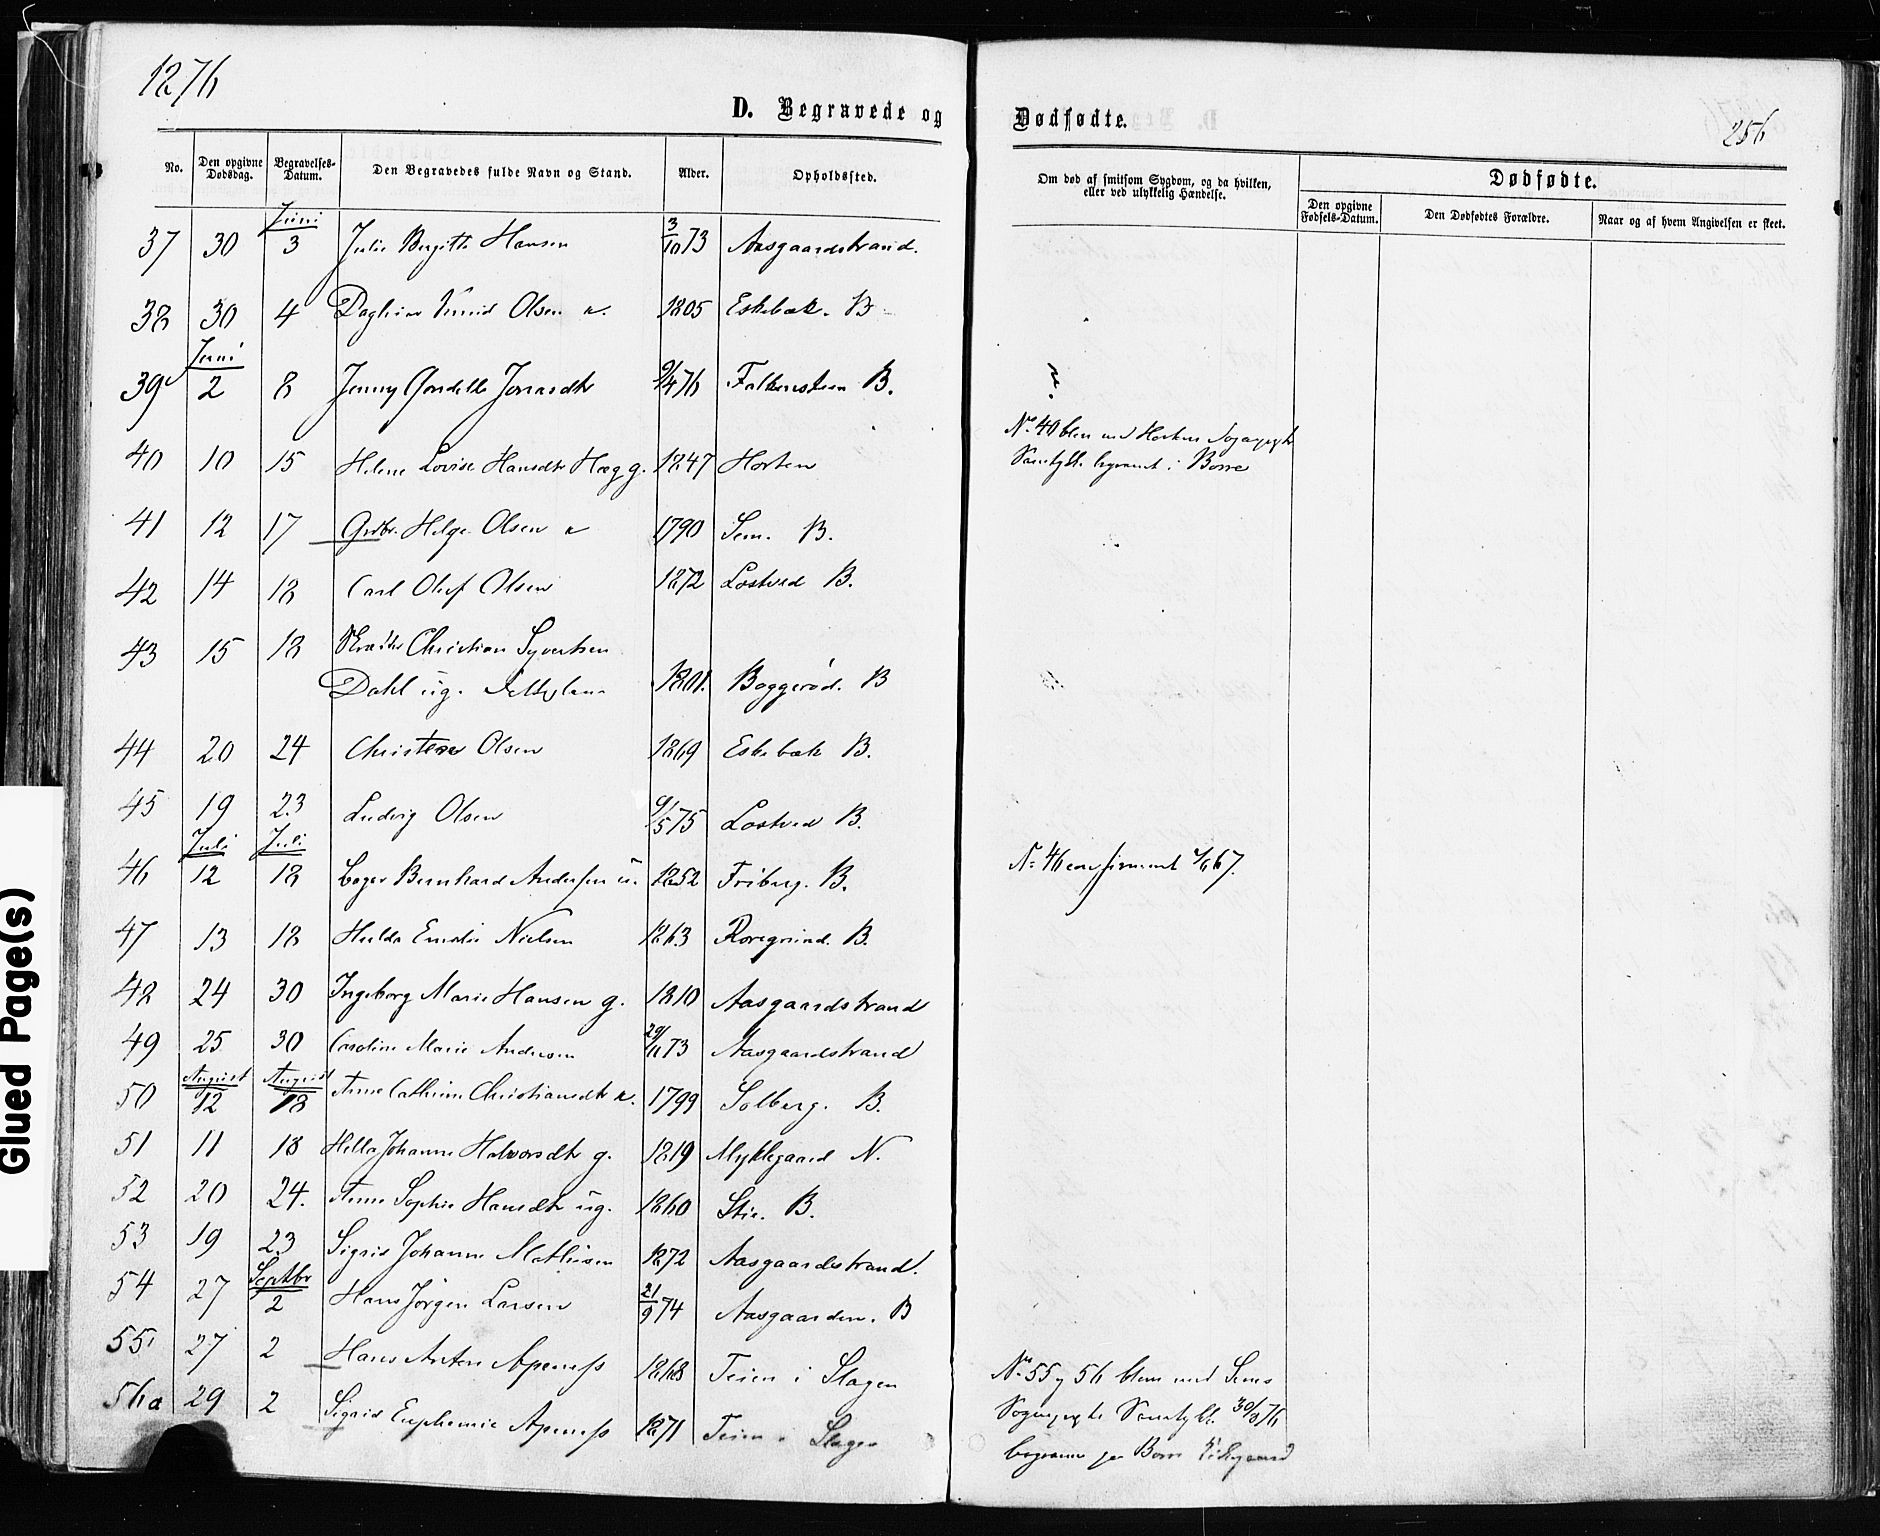 1876
D. Begravede og Dødfødte.
256
No. Den opgivne Dødsdag. Begravelses-Datum. Den Begravedes fulde Navn og Stand. Alder. Opholdssted. Om død af smitsom Sygdom, og da hvilken, eller ved ulykkelig Hændelse. Dødfødte.
Den opgivne Fødsels-Datum. Den Dødfødtes Forældre. Naar og af hvem Angivelsen er skeet.
Juni
37 30 3 Julie Birgitte Hansen 3/10 73 Aasgaardstrand.
38 30 4 Olsen e. 1805 Eskebæk. B
Juni
39 2 8 Jenny 9/4 76 Falkensteen B. ?
40 10 15 Helene Lovise Hansdtr Hægg. 1847 Horten
No 40 blev med Hortens Sognepr.
Samtykke begravet i Borre
41 12 17 Grdbr. Helge Olsen e 1790 Sem. B.
42 14 18 Carl Oluf Olsen 1872 Lostved B.
43 15 18 Christian Syvertsen
Dahl ug. 1801. Boggerød. B
44 20 24 Olsen 1869 Eskebæk B.
45 19 23 Ludvig Olsen 9/5 75 Lostved B.
Juli Juli
46 12 18 Bernhard Andersen u. 1852 Friberg. B. No 46 confirmert 67.
47 13 18 Hulda Emilie Nielsen 1863 Roregrind. B.
48 24 30 Ingeborg Marie Hansen g. 1810 Aasgaardstrand
49 25 30 Caroline Marie Andersen 29/11 73 Aasgaardstrand
August August
50 12 18 Anne Cathrine Christiansdtr e. 1799 Solberg. B.
51 11 18 Johanne Halvorsdtr g. 1819 Myklegaard N.
52 20 24. Anne Sophie Hansdtr ug. 1860 Stie. B.
53 19 23 Sigrid Johanne Mathisen 1872 Aasgaardstrand.
Septbr
54 27 2 Hans Jørgen Larsen 21/9 74 Aasgaarden. B
55 27 2 Hans Anton Apeness 1868 Teien i Slagen
No 55 og 56 blev med Sems
56a 29 2 Sigrid Euphemie Apeness 1871 Teien i Slagen
Sognepr. Samtykke 30/8 76
begravne paa Borre Kirkegaard
Glued Page(s)